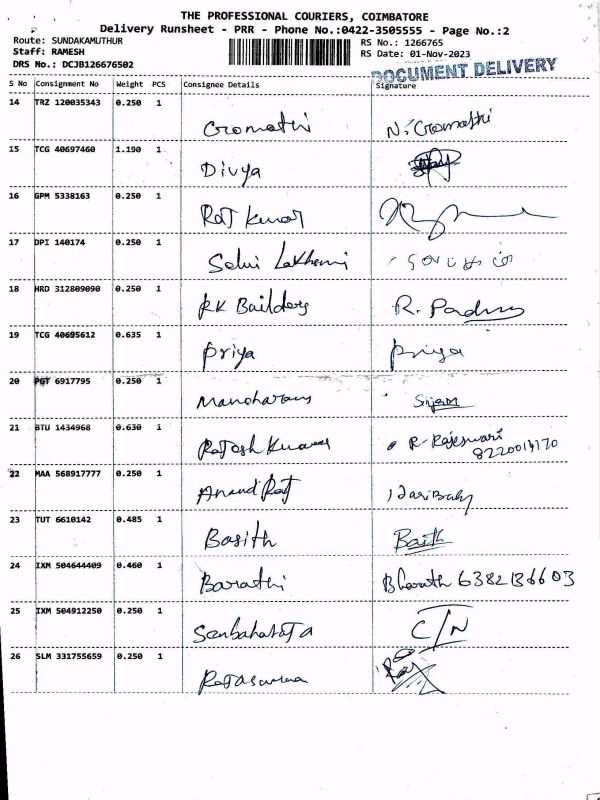 THE PROFESSIONAL COURIERS, COIMBATORE
Delivery Runsheet - PRR - Phone No.:0422-3505555 - Page No.:2
Route: SUNDAKAMUTHUR
RS No.: 1266765
Staff: RAMESH
RS Date: 01-Nov-2023
DRS No.: DCJB126676502
DOCUMENT DELIVERY
S No Consignment No Weight PCS Consignee Details Signature
14 TRZ 120035343 0.250 1
Gomathi N. Gomathi
15 TCG 40697460 1.190 1
Divya
16 GPM 5338163 0.250 1
Raj Kumar
17 DPI 140174 0.250 1
Selvi Lakhsmi
18 HRD 312809090 0.250 1
RK Builders R. Padmu
19 TCG 40695612 0.635 1
Priya Priya
20 PGT 6917795 0.250 1
Manoharan
21 BTU 1434968 0.630 1
Rajesh Kumar R Rajeswari
22 MAA 568917777 0.250 1
Anand Raj Hari Babu
23 TUT 6610142 0.485 1
Basith Basith
24 IXM 504644409 0.460 1
Barathi Bharath 6382136603
25 IXM 504912250 0.250 1
C/N
26 SLM 331755659 0.250 1